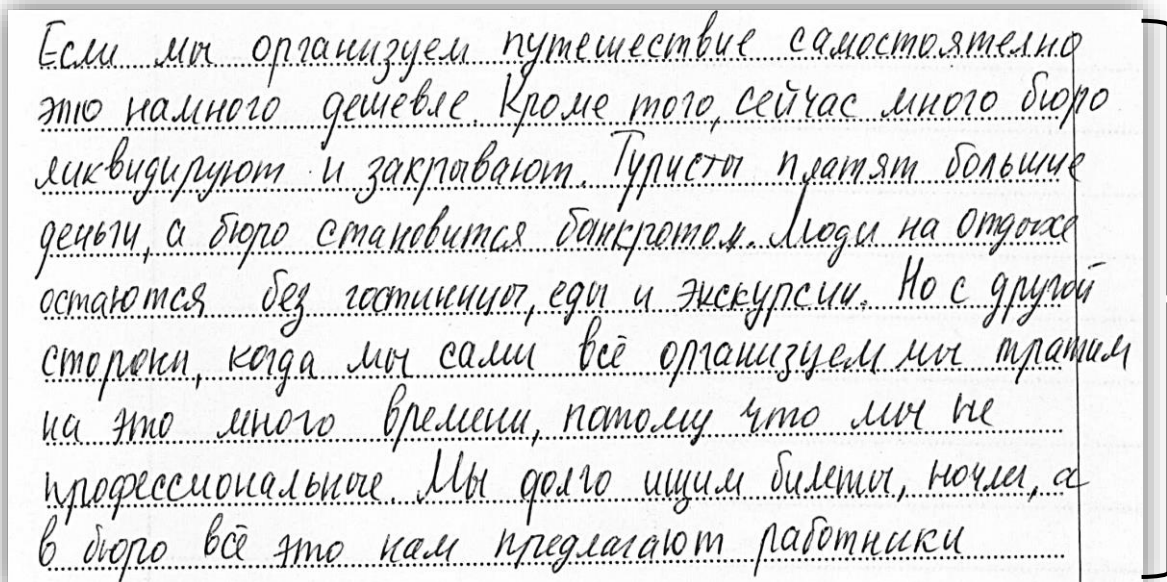 Если мы организуем путешествие самостоятелно
это намного дешевле. Кроме того, сейчас много бюро
ликвидируют и закрывают. Туристы платят большие
деньги, а бюро становится банкротом. Люди на отдыхе
остаются без гостиницы, еды и экскурсии. Но с другой
стороны, когда мы сами всё организуем мы тратим
на это много времени, потому что мы не
профессиональные. Мы долго ищим билеты, ночлег, а
в бюро всё это нам предлагают работники